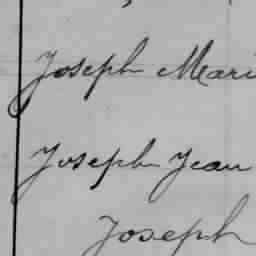 Joseph Mari
Joseph Jean
Joseph